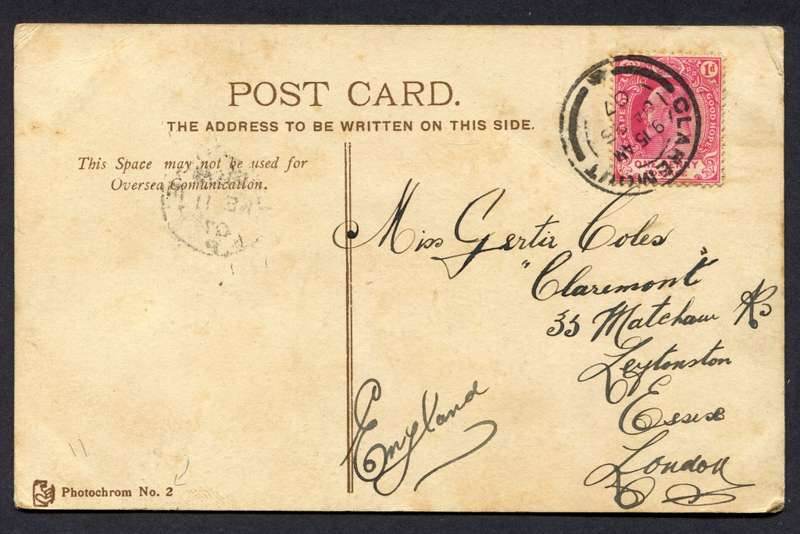 POST CARD.
THE ADDRESS TO BE WRITTEN ON THIS SIDE.
This Space may not be used for
Oversea Comunication.
1d
GOOD HOPE
ONE PENNY
CLAREMONT
9 15 AM
07
Miss Gertie Coles
"Claremont"
33 Matcham Rd
Leytonston
Essex
London
England
11
Photochrom No. 2